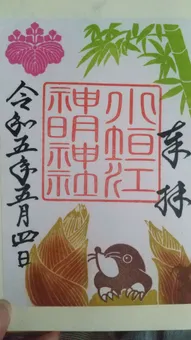 奉拝
小垣江
神明神社
令和五年五月四日